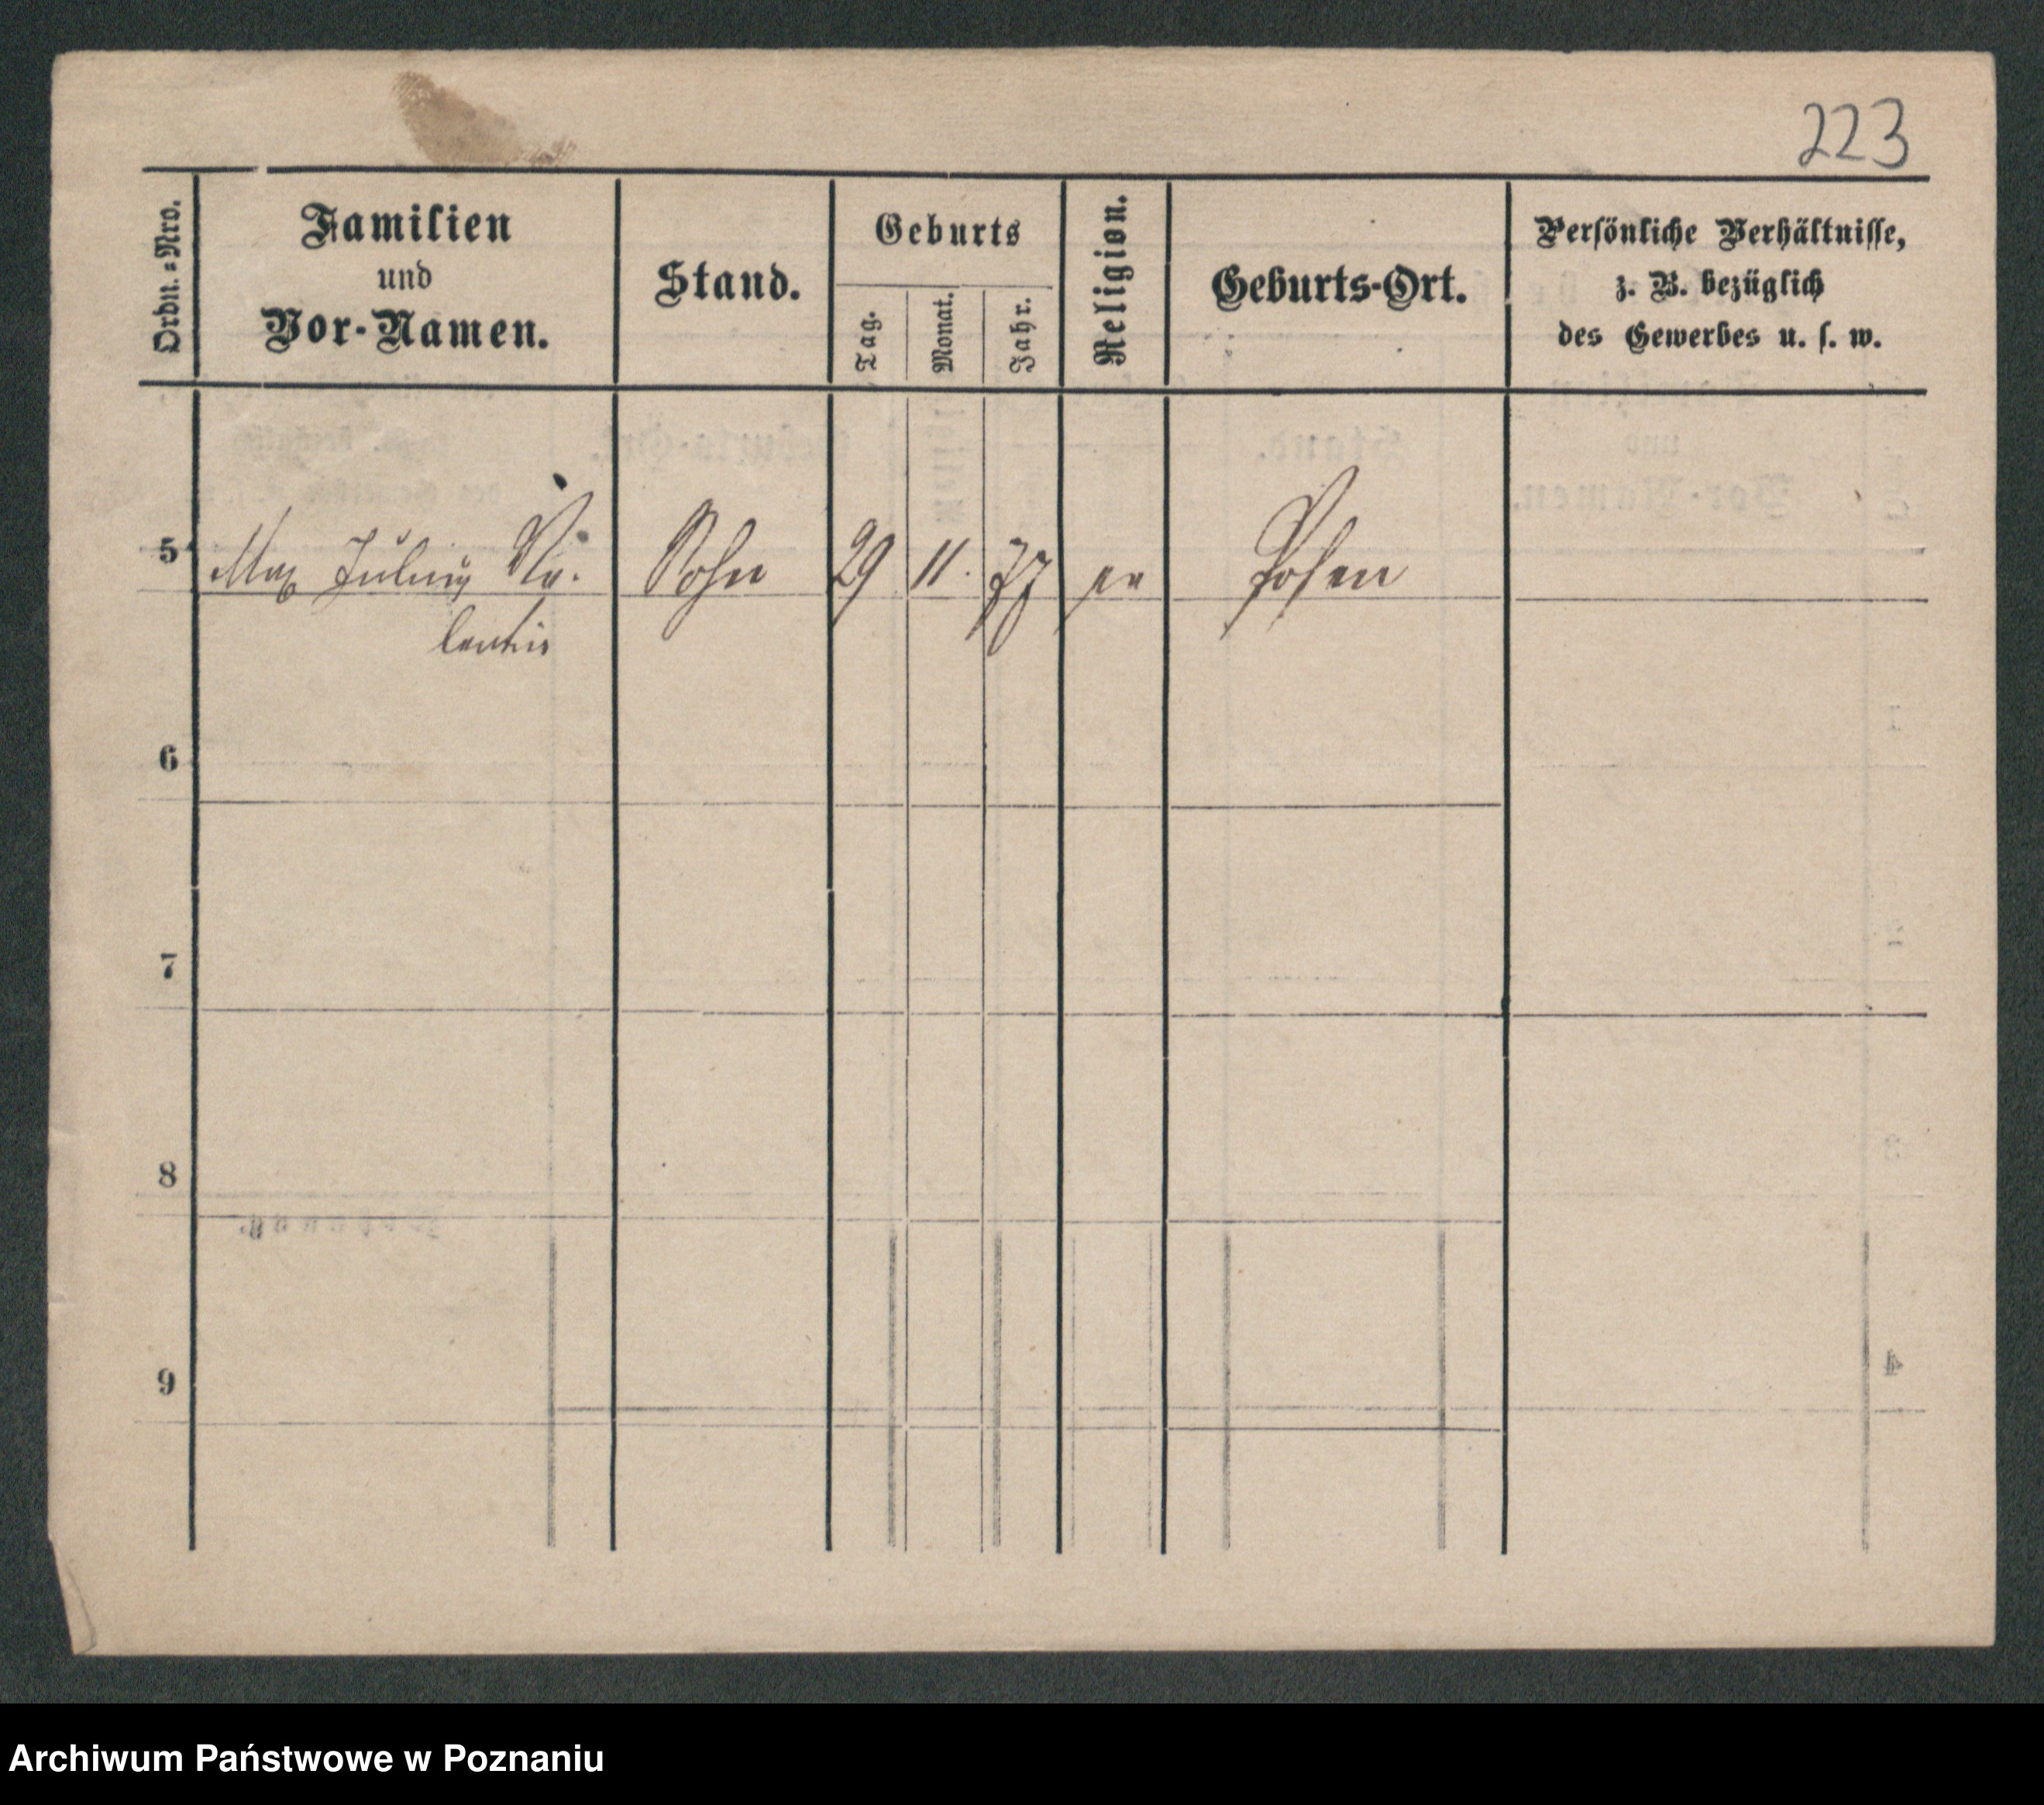 223
Ordn.=Nro.
Familien
und
Vor-Namen.
Stand.
Geburts
Tag.
Monat.
Jahr.
Religion.
Geburts-Ort.
Persönliche Verhältnisse,
z. B. bezüglich
des Gewerbes u. s. w.
5 Max Julius Va- Sohn 29 11. 77 ev Posen
lentin
6
7
8
9
Archiwum Państwowe w Poznaniu